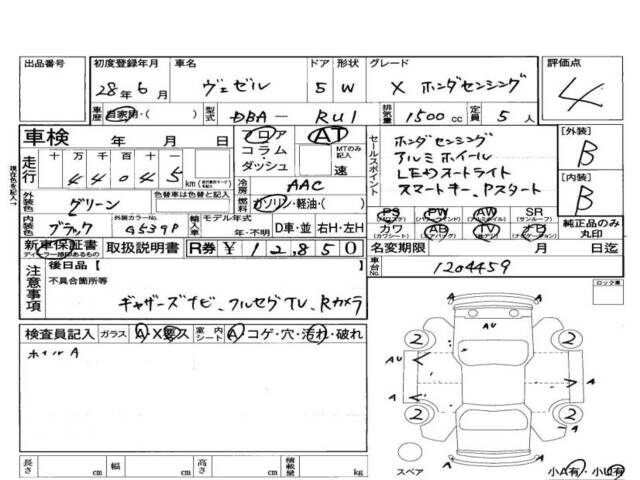 出品番号
初度登録年月 車名 ドア 形状 グレード 評価点
28年 6月 ヴェゼル 5 W X ホンダセンシング 4
車歴 自家用・( ) 型式 DBA — RU1 排気量 1500 cc 定員 5 人
車検 年 月 日
フロア コラム・ダッシュ AT MTのみ記入 速
走行 十 万 千 百 十 一
44045 km
冷房 AAC
燃料 ガソリン・軽油・( )
セールスポイント
ホンダセンシング
アルミホイール
LEDオートライト
スマートキー、Pスタート
[外装] B
[内装] B
現在色を記入→
外装色 グリーン 色替車は色替と記入
内装色 ブラック 外装カラーNo. G539P
輸入車 モデル年式 年・不明 D車・並 右H・左H
PS PW AW SR (サンルーフ)
カワ AB TV ナビ
純正品のみ丸印
新車保証書 取扱説明書 R券 ¥12,850
名変期限 月 日迄
注意事項 後日品【
不具合箇所等
ギャザーズナビ、フルセグTV、Rカメラ
車台No. 1204459
ロック車
検査員記入 ガラス A・X要ス 室内シート A コゲ・穴・汚れ・破れ
ホイルA
AU
2 2
AU A
A A
2 2
A A
スペア 小A有・小U有
長さ cm 幅 cm 高さ cm 積載量 kg